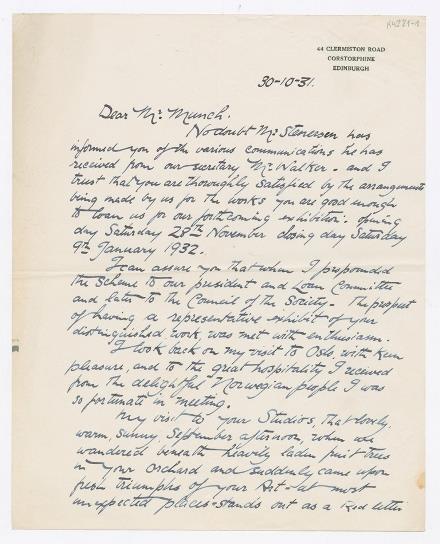 44 CLERMISTON ROAD
CORSTORPHINE
EDINBURGH
30-10-31.
Dear Mr. Munch.
No doubt Mr Stenersen has
informed you of the various communications he has
received from our secretary Mr. Walker - and I
trust that you are thoroughly satisfied by the arrangements
being made by us for the works you are good enough
to loan us for our forthcoming exhibition. opening
day Saturday 28th November closing day Saturday
9th January 1932.
I can assure you that when I propounded
the scheme to our president and Loan Committee
and later to the Council of the Society - The prospect
of having a representative exhibit of your
distinguished work, was met with enthusiasm.
I look back on my visit to Oslo, with keen
pleasure, and to the great hospitality I received
from the delightful Norwegian people I was
so fortunate in meeting.
My visit to your Studios, that lovely,
warm, sunny, September afternoon, when we
wandered beneath heavily laden fruit trees
in your orchard and suddenly came upon
fresh triumphs of your Art - at most
unexpected places - stands out as a Red letter